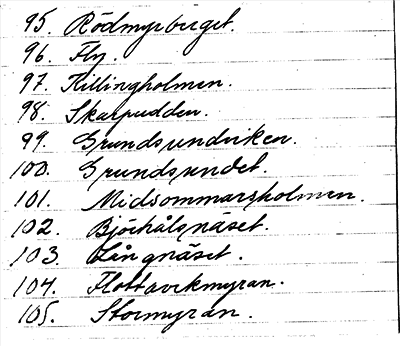 95. Rödmyrberget.
96. Fly.
97. Killingholmen.
98. Skarpudden.
99. Grundsundviken.
100. Grundsundet.
101. Midsommarsholmen.
102. Björhålsnäset.
103. Långnäset.
104. Flottarkmyran.
105. Stormyran.